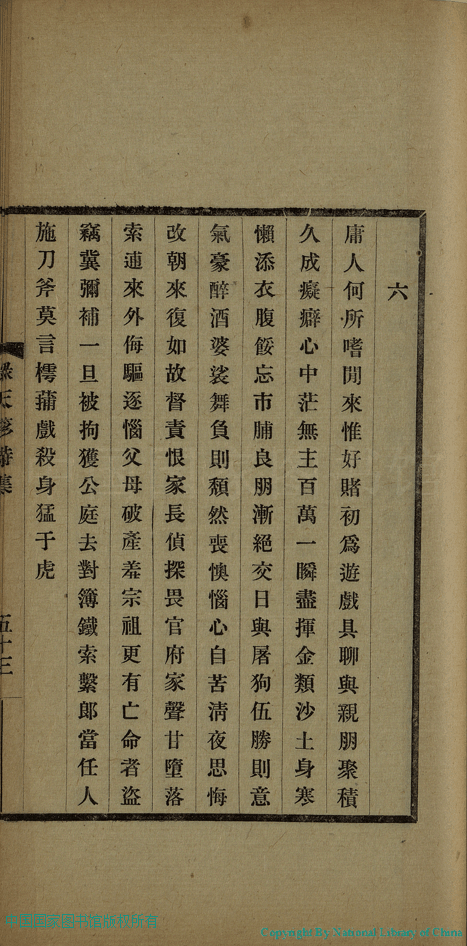 六
庸人何所嗜閒來惟好賭初爲遊戲具聊與親朋聚積
久成癡癖心中茫無主百萬一瞬盡揮金類沙土身寒
懶添衣腹餒忘市脯良朋漸絕交日與屠狗伍勝則意
氣豪醉酒婆裟舞負則頹然喪懊惱心自苦淸夜思悔
改朝來復如故督責恨家長偵探畏官府家聲甘墮落
索逋來外侮驅逐惱父母破產羞宗祖更有亡命者盜
竊冀彌補一旦被拘獲公庭去對簿鐵索繫郎當任人
施刀斧莫言樗蒱戲殺身猛于虎
天
集
五十三
Copyright By National Library of China